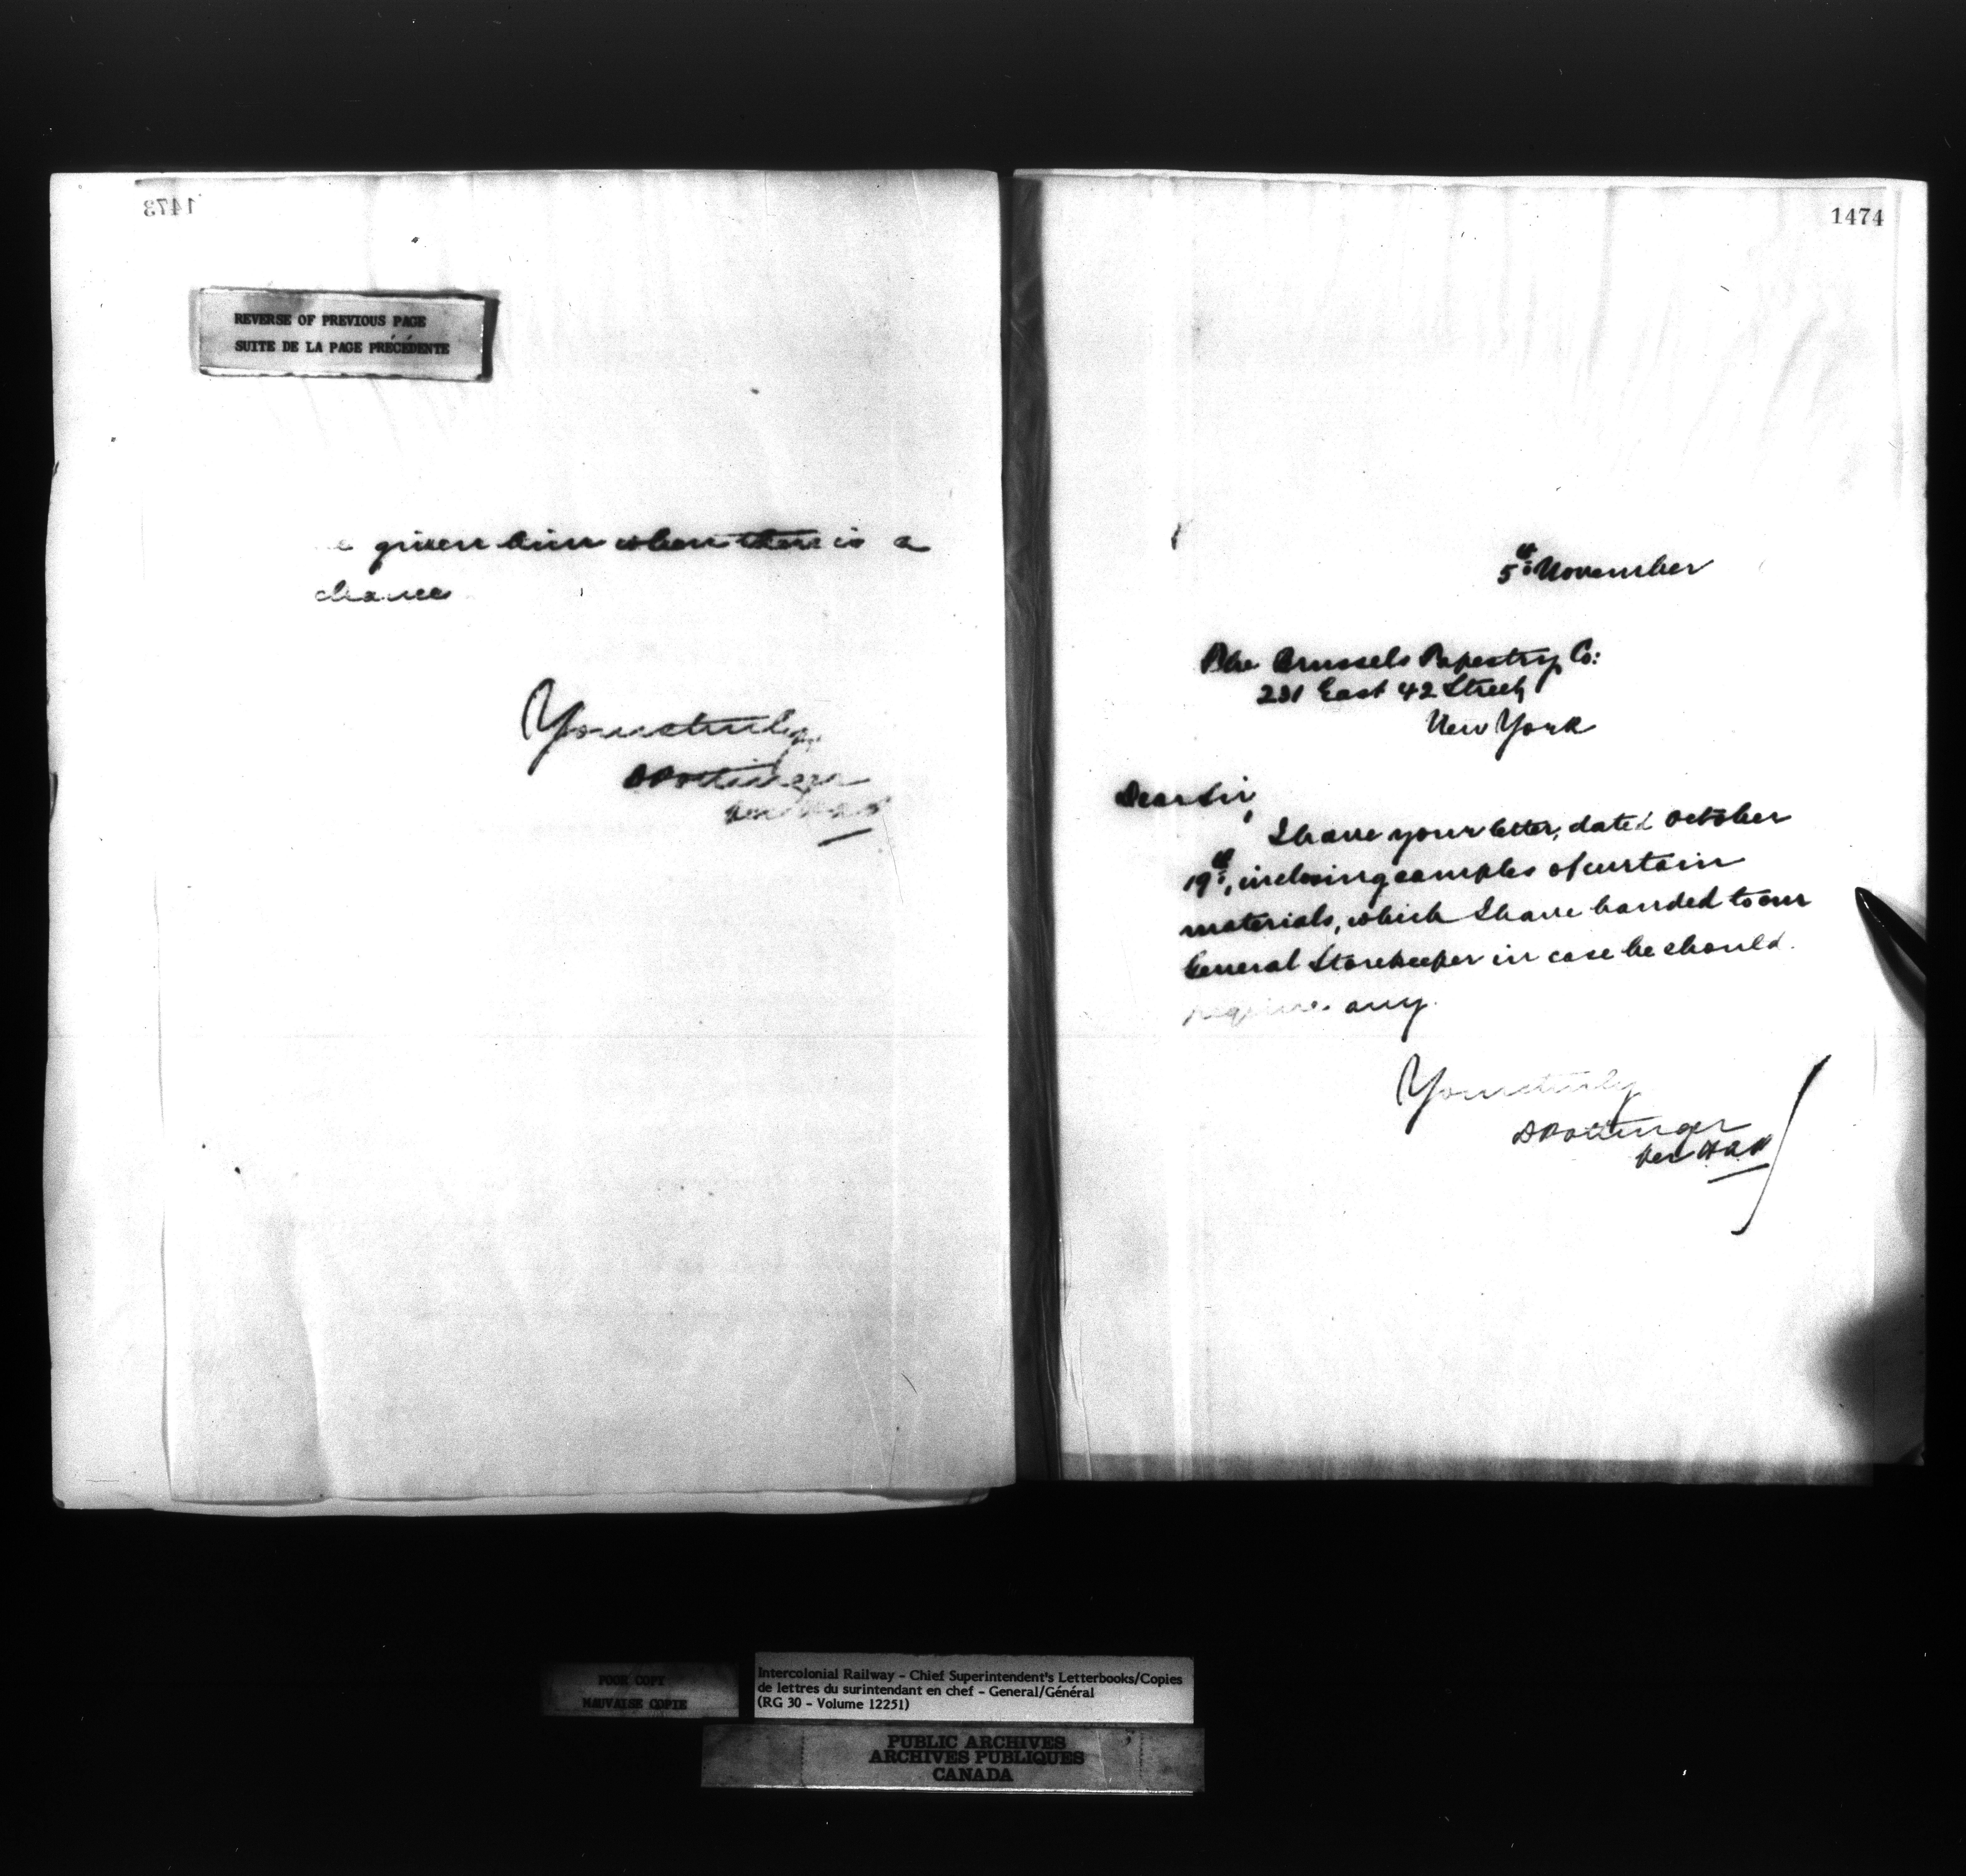 1473
REVERSE OF PREVIOUS PAGE
SUITE DE LA PAGE PRÉCÉDENTE
given him when there is a
chance
Yours truly
D Pottinger
Per
1474
5th November
The Brussels Tapestry Co:
231 East 42 Street,
New York
Dear Sir,
I have your letter, dated October
19th, inclosing samples of curtain
materials, which I have handed to our
General Storekeeper in case he should
require any.
Yours truly
D Pottinger
Per
POOR COPY
MAUVAISE COPIE
Intercolonial Railway - Chief Superintendent's Letterbooks/Copies
de lettres du surintendant en chef - General/Général
(RG 30 - Volume 12251)
PUBLIC ARCHIVES
ARCHIVES PUBLIQUES
CANADA